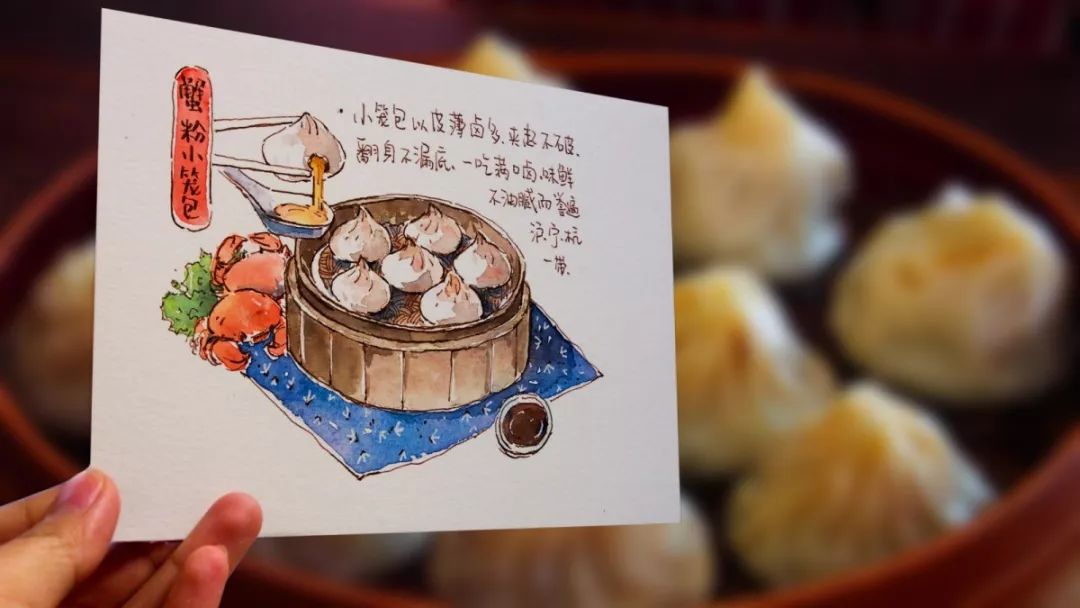 蟹粉小笼包
小笼包以皮薄卤多、夹起不破、
翻身不漏底、一吃满口卤、味鲜
不油腻而誉遍
沪、宁、杭
一带、